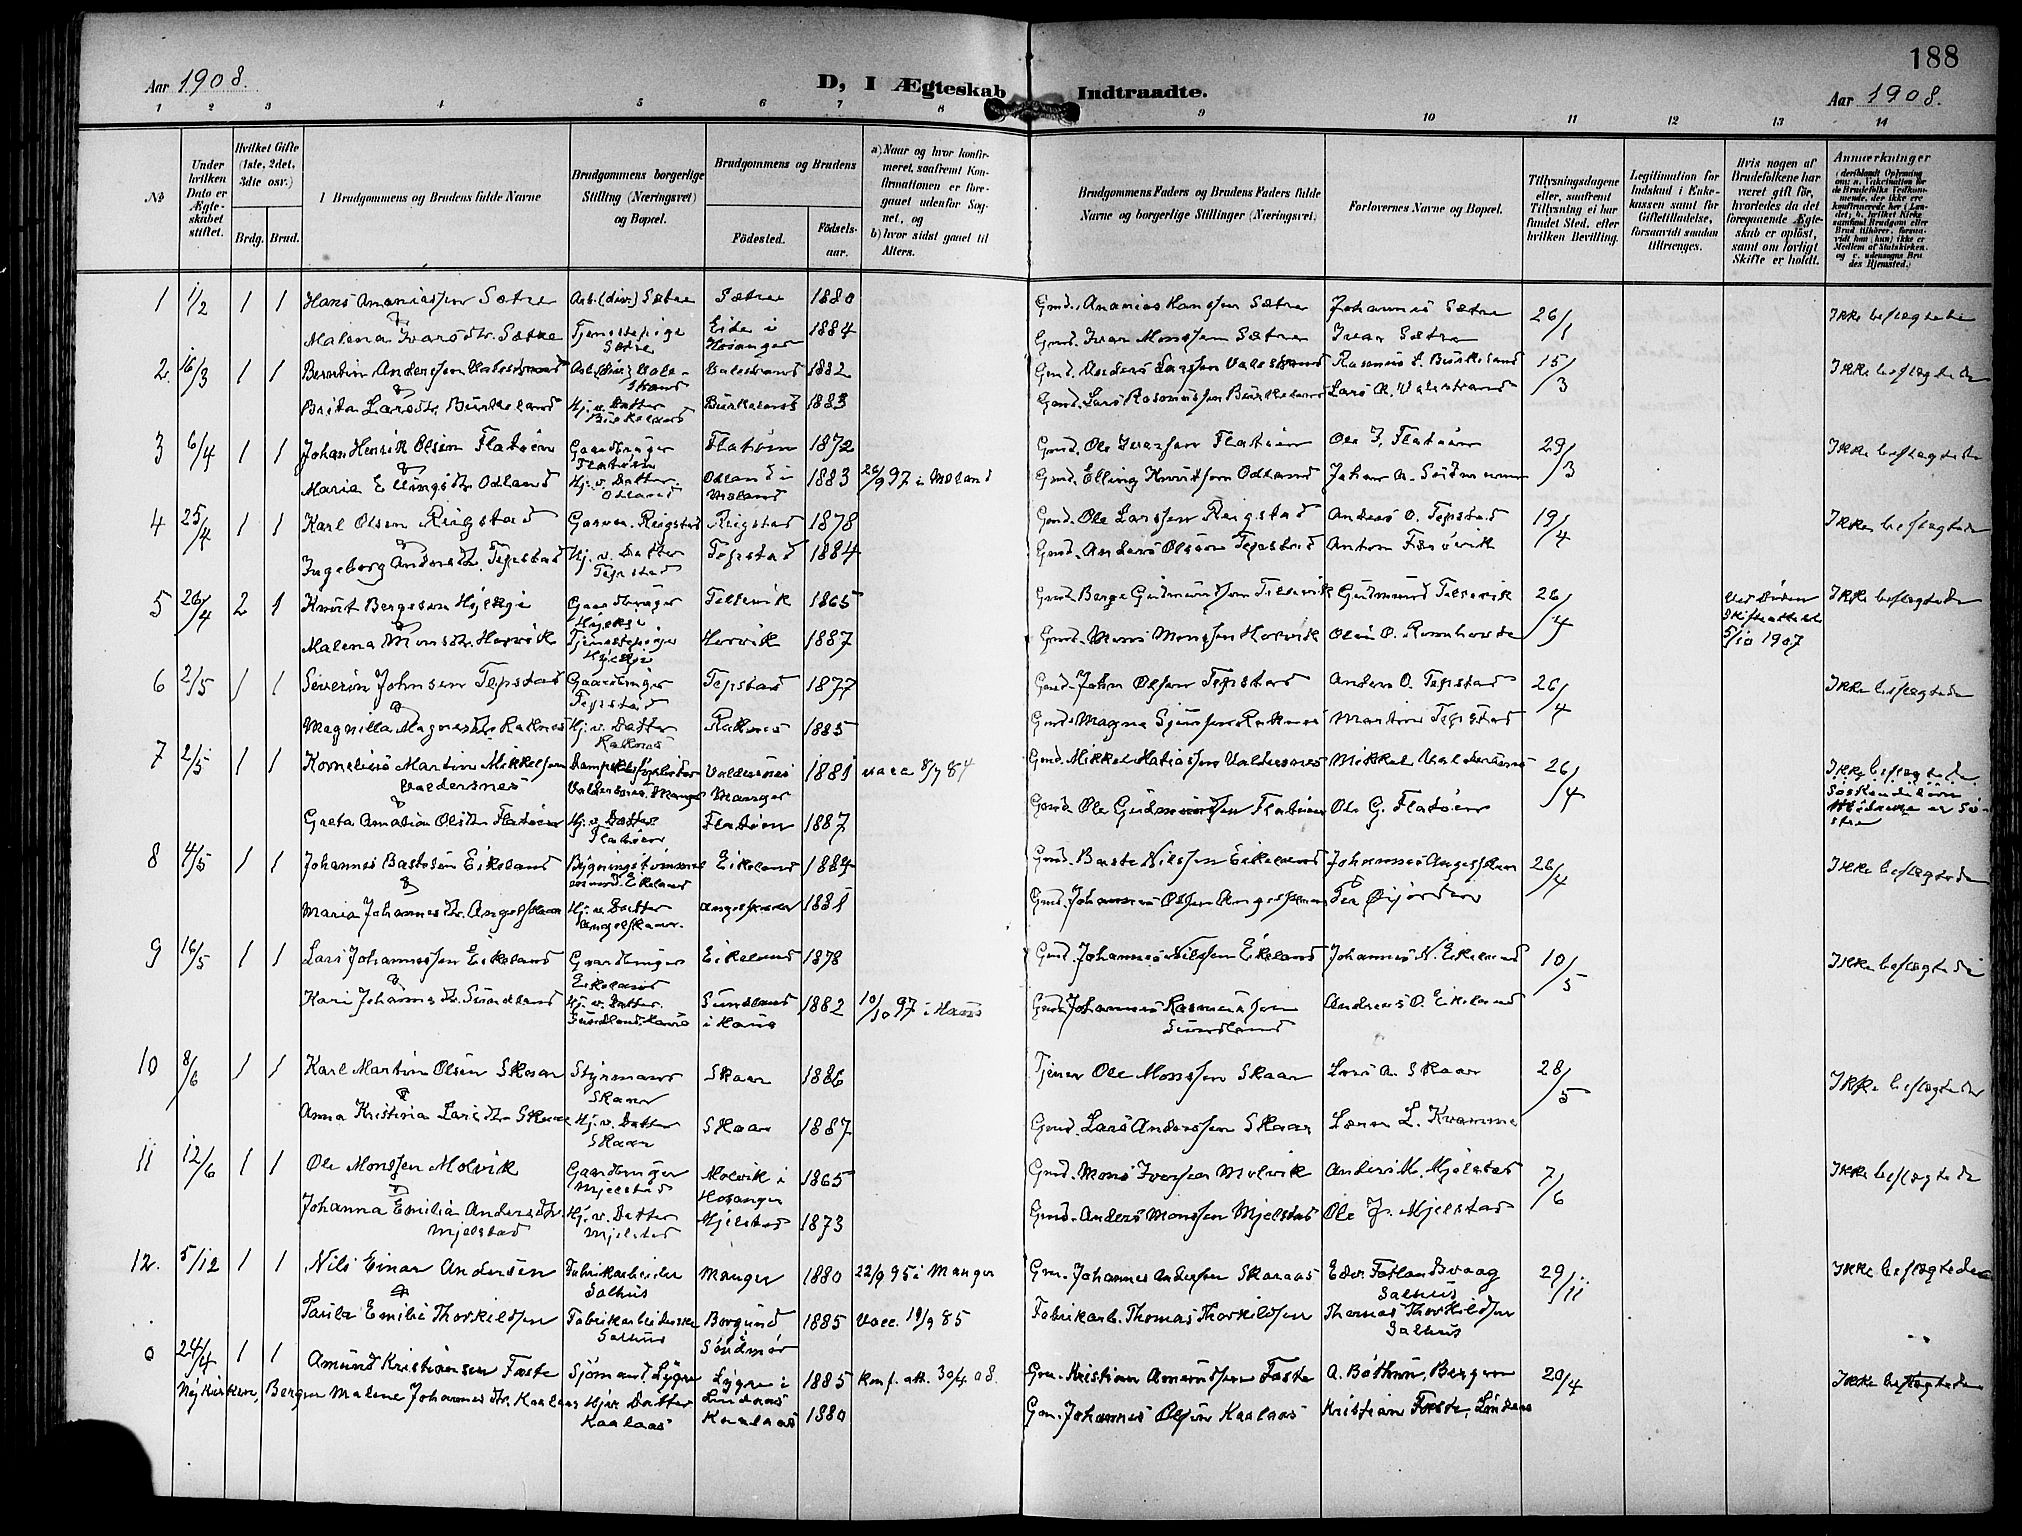 188
Aar 1908.
D, I Ægteskab Indtraadte.
Aar 1908.
1 2 3 4 5 6 7 8 9 10 11 12 13 14
No
Under hvilken Dato er Ægteskabet stiftet.
Hvilket Gifte (1ste, 2det, 3die osv.)
Brdg. Brud.
Brudgommens og Brudens fulde Navne
Brudgommens borgerlige Stilling (Næringsvei) og Bopæl.
Brudgommens og Brudens
Födested.
Födselsaar.
a) Naar og hvor konfirmeret, saafremt Konfirmationen er foregaaet udenfor Sognet, og
b) hvor sidst gaaet til Alters.
Brudgommens Faders og Brudens Faders fulde Navne og borgerlige Stillinger (Næringsvei)
Forlovernes Navne og Bopæl.
Tillysningsdagene eller, saafremt Tillysning ei har fundet Sted, efter hvilken Bevilling.
Legitimation for Indskud i Enkekassen samt for Giftetilladelse, forsaavidt saadan tiltrænges.
Hvis nogen af Brudefolkene har været gift før, hvorledes da det foregaaende Ægteskab er opløst, samt om lovligt Skifte er holdt.
Anmærkninger
1 1/2 1 1 Hans Ananiassen Sætre Arb. (div.) Sætre Sætre 1880 Gmd. Ananias Hanssen Sætre Johannes Sætre 26/1 Ikke beslægtede
& Malena Ivarsdtr. Sætre Tjenestepige Sætre Eide i Hosanger 1884 Gmd. Ivar Monssen Sætre Ivar Sætre
2. 16/3 1 1 Berntin Anderssen Valestrand Arb. (div.) Valestrand Valestrand 1882 Gmd. Anders Larssen Valestrand Rasmus L. Burkeland 15/3 Ikke beslægtede
& Brita Larsdtr. Burkeland Hj. v. Datter Burkeland Burkeland 1883 Gmd. Lars Rasmussen Burkeland Lars A. Valestrand
3 6/4 1 1 Johan Henrik Olsen Flatöen Gaardbruger Flatöen Flatöen 1872 Gmd. Ole Iversen Flatöen Ole J. Flatöen 29/3 Ikke beslægtede
& Maria Ellingsdtr. Odland Hj. v. Datter Odland Odland i Mæland 1883 26/9 97 i Mæland Gmd. Elling Knudsen Odland Johan A.
4 25/4 1 1 Karl Olsen Rigstad Gaardbr. Rigstad Rigstad 1878 Gmd. Ole Larssen Rigstad Anders O. Tepstad 19/4 Ikke beslægtede
& Ingeborg Andersdtr. Tepstad Hj. v. Datter Tepstad Tepstad 1884 Gmd. Anders Olsen Tepstad Anton
5 26/4 2 1 Knut Bergesen Hjelkje Gaardbruger 1865 Gmd. Berge Gudmundsen Gudmund 26/4 Ved Döden Skifteattest 5/10 1907 Ikke beslægtede
& Malena Monsdtr. Hervik Tjenestepige Hervik 1887 Gmd. Mons Monssen Hervik
6 2/5 1 1 Severin Johnsen Tepstad Gaardbruger Tepstad Tepstad 1877 Gmd. John Olsen Tepstad Anders O. Tepstad 26/4 Ikke beslægtede
& Magnilla Magnesdtr. Raknes Hj. v. Datter Raknes Raknes 1885 Gmd. Magne Raknes Martin Tepstad
7 2/5 1 1 Kornelius Martin Mikkelsen Valdersnes Valdersnes, Manger Valdersnes Manger 1881 vacc 8/7 84 Gmd. Mikkel Matiassen Valdersnes Mikkel Valdersnes 26/4 Ikke beslægtede
& Greta Amalia Olsdtr. Flatöen Hj. v. Datter Flatöen Flatöen 1887 Gmd. Ole Flatöen Ole G. Flatöen
8 4/5 1 1 Johannes Bastesen Eikeland Eikeland Eikeland 1884 Gmd. Baste Nilssen Eikeland Johannes Angelskaar 26/4 Ikke beslægtede
& Maria Johannesdtr. Angelskaar Hj. v. Datter Angelskaar. Angelskaar 1881 Gmd. Johannes Olsen Angelskaar
9 16/5 1 1 Lars Johannessen Eikeland Gaardbruger Eikeland Eikeland 1878 Gmd. Johannes Nilssen Eikeland Johannes N. Eikeland 10/5 Ikke beslægtede
& Kari Johannesdtr. Sundland Hj. v. Datter. Sundland, Haus Sundland i Haus 1882 10/10 97 i Haus Gmd. Johannes Rasmussen Sundland Andreas O. Eikeland
10 8/6 1 1 Karl Martin Olsen Skaar Styrmand Skaar Skaar 1886 Tjener Ole Monssen Skaar Lars A. Skaar 28/5 Ikke beslægtede
& Anna Kristina Larsdtr. Skaar Hj. v. Datter Skaar Skaar 1887 Gmd. Lars Anderssen Skaar L. Kvamme
11 12/6 1 1 Ole Monssen Molvik Gaardbruger Mjelstad Molvik i Hosanger 1865 Gmd. Mons Iversen Molvik Anders M. Mjelstad 7/6 Ikke beslægtede
& Johanna Emilia Andersdtr. Mjelstad Hj. v. Datter Mjelstad Mjelstad 1873 Gmd. Anders Monssen Mjelstad Ole J. Mjelstad
12. 5/12 1 1 Nils Einar Andersen Fabrikarbeider Salhus Manger 1880 22/9 95 i Manger Gmr. Johannes Andersen Skaraas Edv. Fotlandsvaag Salhus 29/11 Ikke beslægtede
& Paula Emilie Thorkildsen Fabrikarbeiderske Salhus Borgund Söndmör 1885 Vacc. 19/9 85 Fabrikarb. Thomas Thorkildsen Thomas Thorkildsen Salhus
0 24/4 1 1 Amund Kristiansen Faste Sjömand Lygre Lygre i Lindaas 1885 Konf. att. 30/4 08. Gmr. Kristian Amundsen Faste A. Bothun, Bergen 20/4 Ikke beslægtede
Nykirken, Bergen Malene Johannesdtr. Kaalaas Hjv. Datter Kaalaas Kaalaas 1880 Gmr. Johannes Olsen Kaalaas Kristian Faste, Lindaas